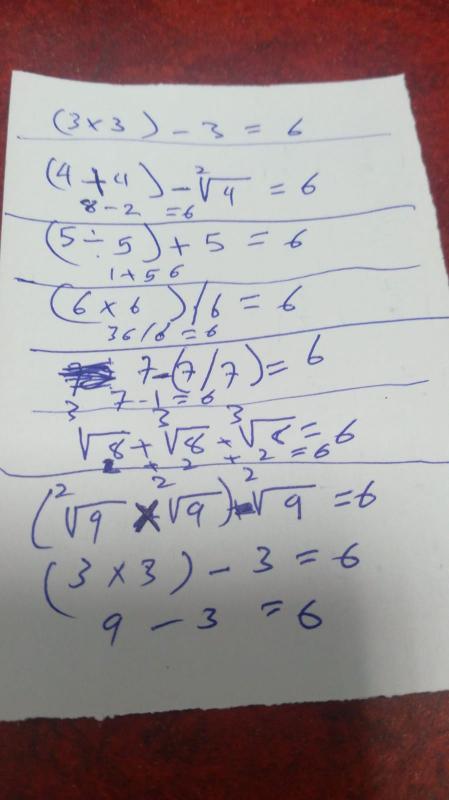 (3 × 3) - 3 = 6
(4 + 4) - ²√4 = 6
8 - 2 = 6
(5 ÷ 5) + 5 = 6
1 + 5 6
(6 × 6) / 6 = 6
36 / 6 = 6
7 - (7 / 7) = 6
7 - 1 = 6
³√8 + ³√8 + ³√8 = 6
2 + 2 + 2 = 6
(²√9 × ²√9) - ²√9 = 6
(3 × 3) - 3 = 6
9 - 3 = 6